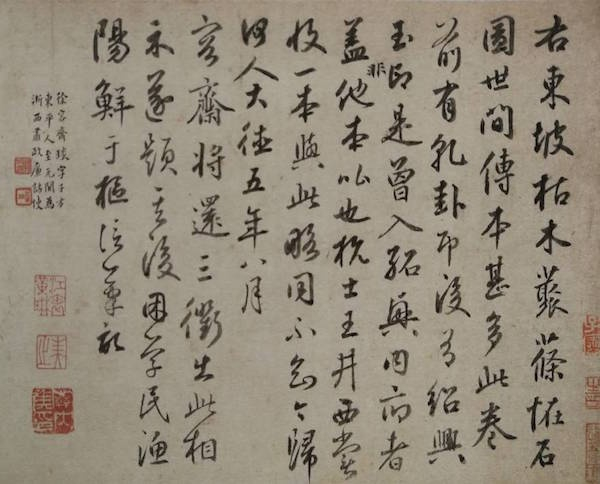 右東坡枯木叢篠怪石
圖世間傳本甚多此卷
前有乾卦印後有紹興
玉印是曾入紹興內府者
蓋非他本比也杭士王井西嘗
收一本與此略同不知今歸
何人大德五年八月
容齋將還三衢出此相
示遂題其後困學民漁
陽鮮于樞信筆記
徐容齋琰字子方
東平人至元間為
浙西肅政廉訪使